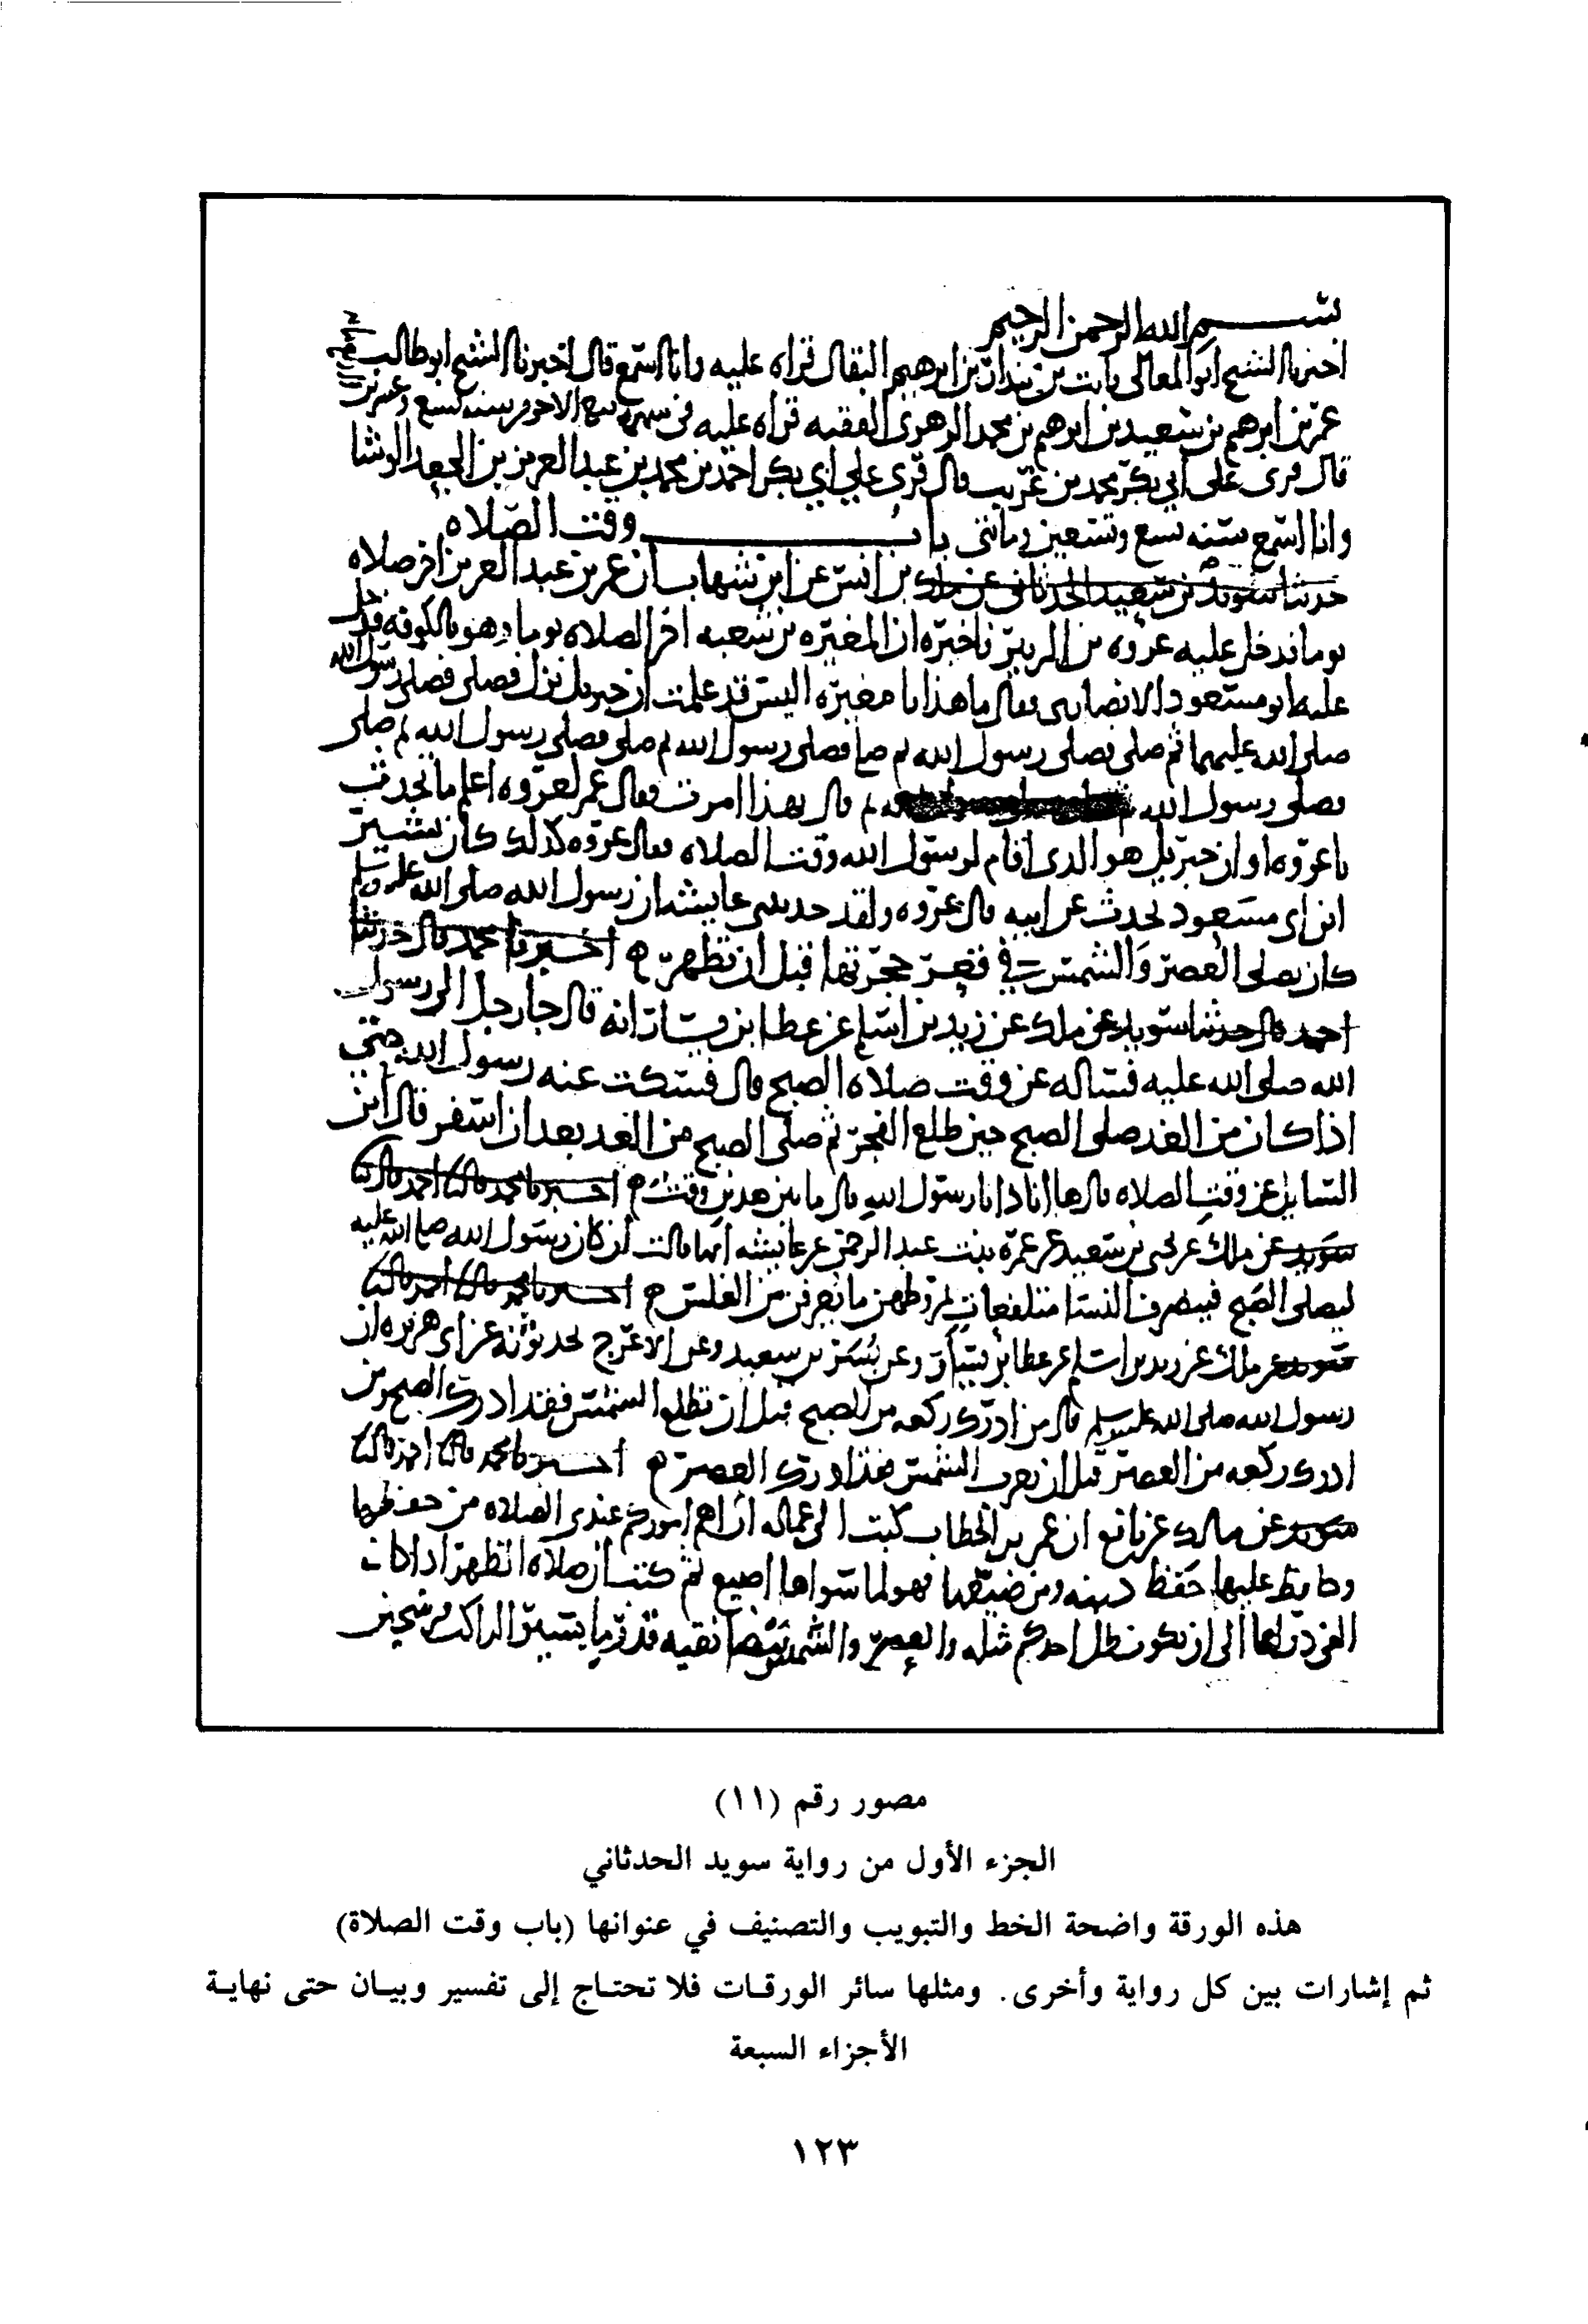 بسم الله الرحمن الرحيم
اخبرنا الشيخ ابو المعالى ثابت بن بندار بن ابرهيم البقال قراه عليه وانا اسمع قال اخبرنا الشيخ ابو طالب
عمر بن ابرهيم بن سعيد بن ابرهيم بن محمد الزهرى الفقيه قراه عليه فى شهر ربيع الاخر من سنه تسع وعشرين
قال قرى على ابى بكر محمد بن غريب قال قرى على ابى بكر احمد بن محمد بن عبد العزيز بن الجعد الوشا
وانا اسمع سنه سبع وتسعين ومائتى باب وقت الصلاه
حدثنا سويد بن سعيد الحدثانى عن ملك بن انس عن ابن شهاب ان عمر بن عبد العزيز اخر صلاه
يوما فدخل عليه عروه بن الزبير فاخبره ان المغيره بن شعبه اخر الصلاه يوما وهو بالكوفه فدخل
عليه ابو مسعود الانصارى فقال ما هذا يا مغيره اليس قد علمت ان جبريل نزل فصلى فصلى رسول الله
صلى الله عليهما ثم صلى فصلى رسول الله ثم صلى فصلى رسول الله ثم صلى فصلى رسول الله ثم صلى
فصلى رسول الله ثم قال بهذا امرت فقال عمر لعروه اعلم ما تحدث
يا عروه او ان جبريل هو الذى اقام لرسول الله وقت الصلاه فقال عروه كذلك كان بشير
ابن ابى مسعود يحدث عن ابيه قال عروه ولقد حدثتنى عايشه ان رسول الله صلى الله عليه وسلم
كان يصلى العصر والشمس فى قعر حجرتها قبل ان تظهر ه اخبرنا محمد قال حدثنا
احمد قال حدثنا سويد عن ملك عن زيد بن اسلم عن عطا بن يسار انه قال جا رجل الى رسول
الله صلى الله عليه فساله عن وقت صلاه الصبح قال فسكت عنه رسول الله حتى
اذا كان من الغد صلى الصبح حين طلع الفجر ثم صلى الصبح من الغد بعد ان اسفر قال اين
السايل عن وقت الصلاه قال ها انا ذا يا رسول الله قال ما بين هذين وقت ه اخبرنا محمد قال ثنا احمد قال ثنا
سويد عن ملك عن يحيى بن سعيد عن عمره بنت عبد الرحمن عن عايشه انها قالت ان كان رسول الله صلى الله عليه
ليصلى الصبح فينصرف النسا متلفعات بمروطهن ما يعرفن من الغلس ه اخبرنا محمد قال ثنا احمد قال ثنا
سويد عن ملك عن زيد بن اسلم عن عطا بن يسار وعن بسر بن سعيد وعن الاعرج يحدثونه عن ابى هريره ان
رسول الله صلى الله عليه وسلم قال من ادرك ركعه من الصبح قبل ان تطلع الشمس فقد ادرك الصبح ومن
ادرك ركعه من العصر قبل ان تغرب الشمس فقد ادرك العصر ه اخبرنا محمد قال ثنا احمد قال ثنا
سويد عن مالك عن نافع ان عمر بن الخطاب كتب الى عماله ان اهم اموركم عندى الصلاه من حفظها
وحافظ عليها حفظ دينه ومن ضيعها فهو لما سواها اضيع ثم كتب ان صلاه الظهر اذا كان
الفى ذراعا الى ان يكون ظل احدكم مثله والعصر والشمس بيضا نقيه قدر ما يسير الراكب فرسخين
مصور رقم (١١)
الجزء الأول من رواية سويد الحدثاني
هذه الورقة واضحة الخط والتبويب والتصنيف في عنوانها (باب وقت الصلاة)
ثم إشارات بين كل رواية وأخرى. ومثلها سائر الورقات فلا تحتاج إلى تفسير وبيان حتى نهاية
الأجزاء السبعة
١٢٣